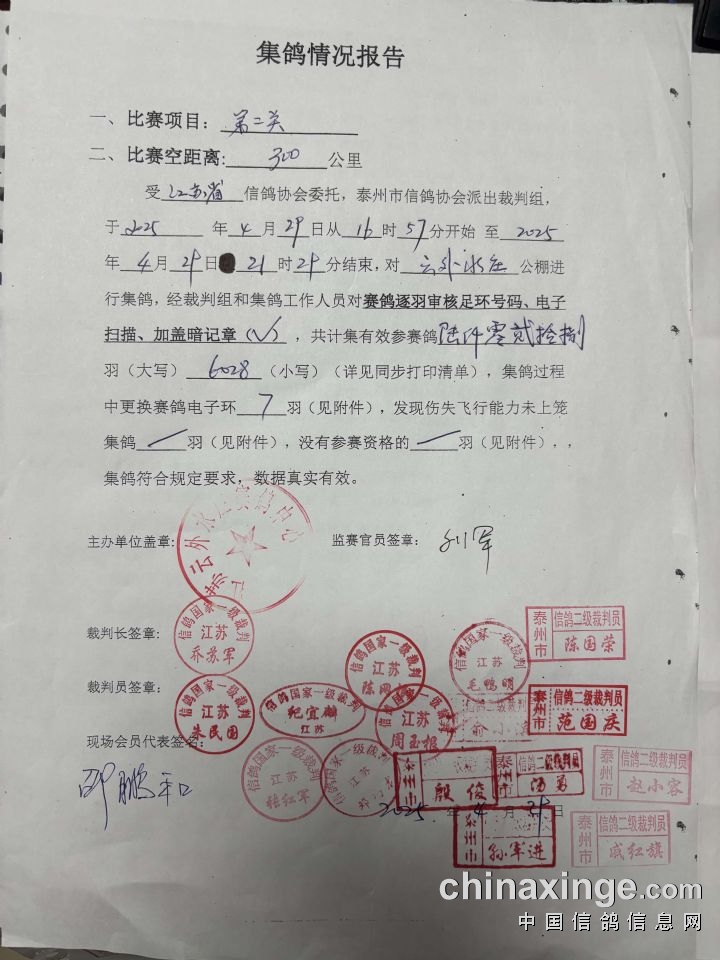 集鸽情况报告
一、比赛项目：第二关
二、比赛空距离:300公里
受江苏省信鸽协会委托，泰州市信鸽协会派出裁判组，
于2025年4月29日从16时57分开始 至2025
年4月29日21时29分结束，对云外水庄公棚进
行集鸽，经裁判组和集鸽工作人员对赛鸽逐羽审核足环号码、电子
扫描、加盖暗记章（√），共计集有效参赛鸽陆仟零贰拾捌
羽（大写）6028（小写）（详见同步打印清单），集鸽过程
中更换赛鸽电子环7羽（见附件），发现伤失飞行能力未上笼
集鸽/羽（见附件），没有参赛资格的/羽（见附件），，
集鸽符合规定要求，数据真实有效。
主办单位盖章： 监赛官员签章：
裁判长签章：
信鸽国家一级裁判 江苏 乔苏军
泰州市 信鸽二级裁判员 陈国荣
信鸽国家一级裁判 江苏
信鸽国家一级裁判 江苏 毛鸭明
裁判员签章：
信鸽国家一级裁判 江苏 朱民国
信鸽国家一级裁判 纪宜麟 江苏
江苏 周玉根
泰州市 信鸽二级裁判员 范国庆
现场会员代表签名：
信鸽国家一级裁判 江苏 张红军
信鸽国家一级裁判
殷俊
汤勇
泰州市 信鸽二级裁判员 赵小容
2025年4月29日
孙军进
泰州市 信鸽二级裁判员 戚红旗
chinaxinge.com
中国信鸽信息网